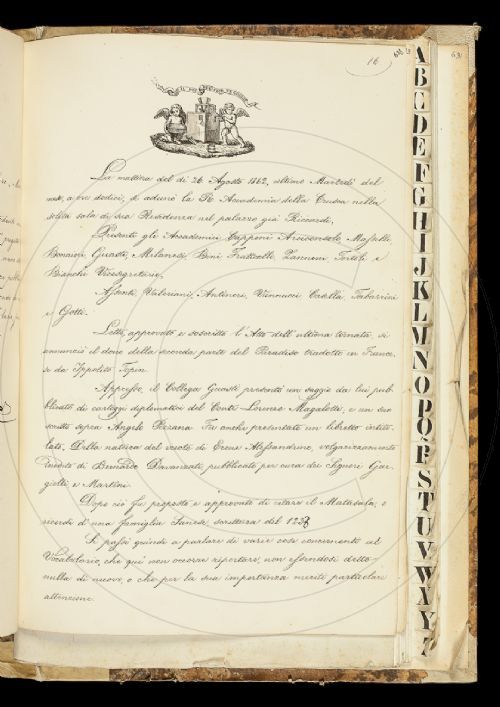 16
La mattina del dì 26 Agosto 1862, ultimo Martedì del
mese, a ore dodici, si adunò la R. Accademia della Crusca nella
solita sala di sua Residenza nel palazzo già Riccardi.
Presenti gli Accademici Capponi Arciconsolo, Masselli
Bonaini Guasti, Milanesi, Bini Fraticelli Zannoni Tortoli e
Bianchi Vicesegretario.
Assenti, Valeriani, Antinori, Vannucci Casella Tabarrini
e Gotti.
Letto, approvato e soscritto l'Atto dell'ultima tornata, si
annunciò il dono della seconda parte del Paradiso tradotto in France-
se da Ippolito Topin.
Appresso, il Collega Guasti presentò un saggio da lui pub-
blicato di carteggi diplomatici del Conte Lorenzo Magalotti, e un suo
scritto sopra Angelo Pezzana. Fu anche presentato un libretto intito-
lato. Della natura del vuoto di Erone Alessandrino, volgarizzamento
inedito di Bernardo Davanzati, pubblicato per cura dei Signori Gar-
giolli e Martini.
Dopo ciò fu proposto e approvato di citare il Mattasalà, o
ricordi di una famiglia Sanese, scrittura del
Si passò quindi a parlare di varie cose concernenti al
Vocabolario, che qui non occorre riportare, non essendosi detto
nulla di nuovo, o che per la sua importanza meriti particolare
attenzione.
A
B
C
D
E
F
G
H
I
J
K
L
M
N
O
P
Q
R
S
T
U
V
W
X
Y
Z